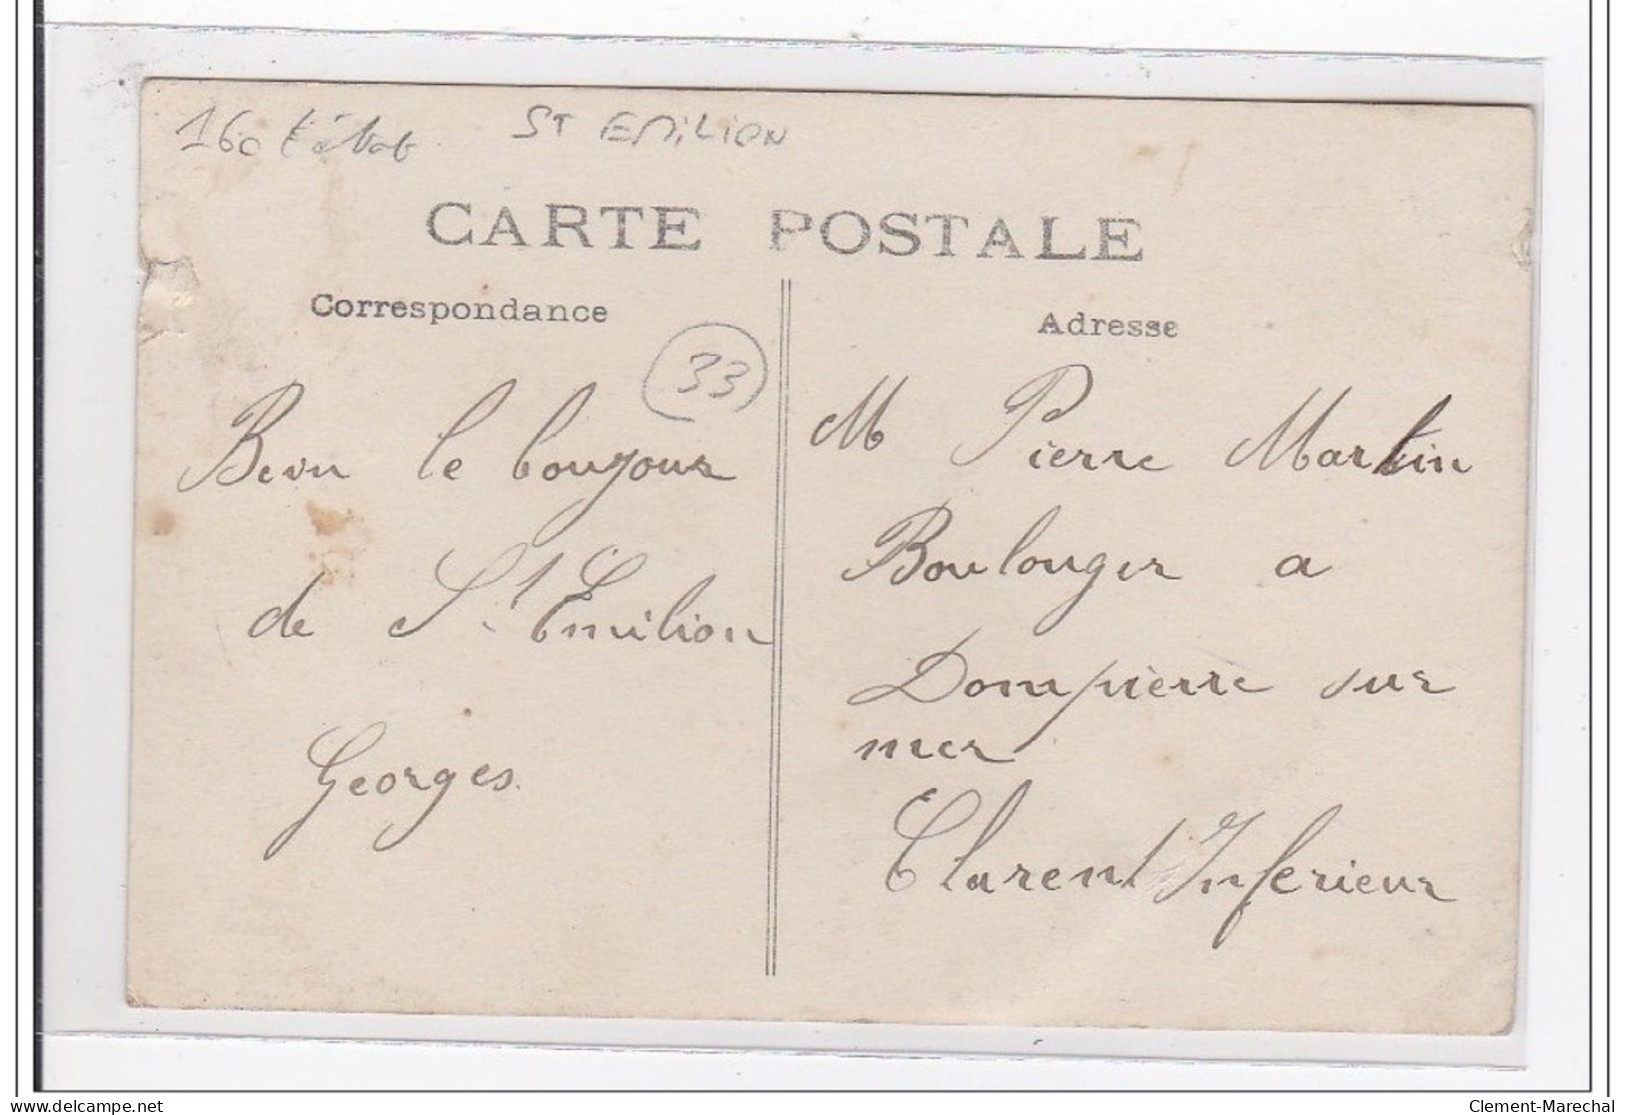 160 t.état
ST EMILION
CARTE POSTALE
Correspondance
33
Bein le bonjour
de St. Emilion
Georges.
Adresse
M Pierre Martin
Boulonger a
Dompierre sur
mer
Clarent Inferieur
Clement-Marechal